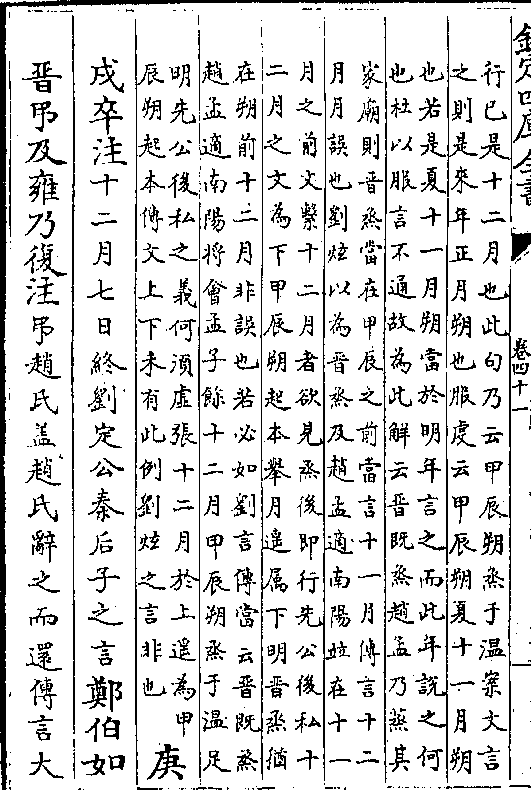 欽定四庫全書
卷四十一
行已是十二月也此句乃云甲辰朔烝于温案文言
之則是來年正月朔也服虔云甲辰朔夏十一月朔
也若是夏十一月朔當於明年言之而此年說之何
也杜以服言不通故為此解云晉既烝趙孟乃烝其
家廟則晉烝當在甲辰之前當言十一月傳言十二
月月誤也劉炫以為晉烝及趙孟適南陽竝在十一
月之前文繫十二月者欲見烝後即行先公後私十
二月之文為下甲辰朔起本舉月遥屬下明晉烝猶
在朔前十二月非誤也若必如劉言傳當云晉既烝
趙孟適南陽將會孟子餘十二月甲辰朔烝于温足
明先公後私之義何須虚張十二月於上遥為甲
辰朔起本傳文上下未有此例劉炫之言非也 庚
戌卒注十二月七日終劉定公秦后子之言鄭伯如
晉弔及雍乃復注弔趙氏蓋趙氏辭之而還傳言大